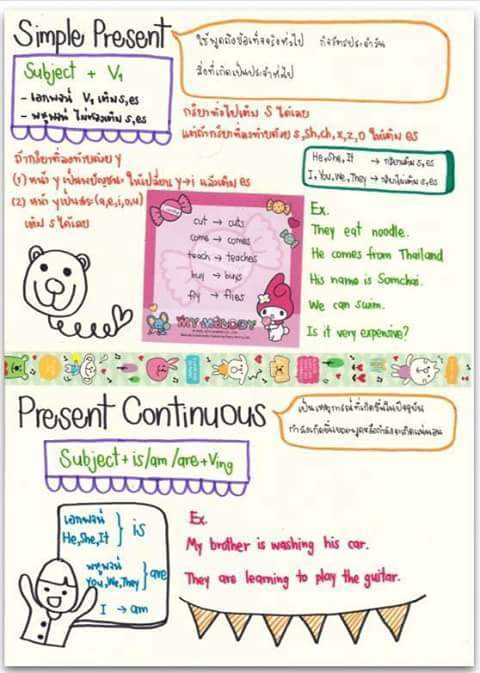 Simple Present
ใช้พูดถึงข้อเท็จจริงทั่วไป กิจวัตรประจำวัน
สิ่งที่เกิดเป็นประจำทั่วไป
Subject + V₁
- เอกพจน์ V₁ เติม s,es
- พหูพจน์ ไม่ต้องเติม s,es
กริยาทั่วไปเติม s ได้เลย
แต่ถ้ากริยาที่ลงท้ายด้วย s,sh,ch,x,z,o ให้เติม es
ถ้ากริยาที่ลงท้ายด้วย y
(1) หน้า y เป็นพยัญชนะ ให้เปลี่ยน y→i แล้วเติม es
(2) หน้า y เป็นสระ (a,e,i,o,u)
เติม s ได้เลย
He,She,It → กริยาเติม s,es
I,You,We,They → กริยาไม่เติม s,es
cut → cuts
come → comes
teach → teaches
buy → buys
fly → flies
MY MELODY
Ex.
They eat noodle.
He comes from Thailand
His name is Somchai.
We can swim.
Is it very expensive?
Present Continuous
เป็นเหตุการณ์ที่เกิดขึ้นในปัจจุบัน
Subject + is/am/are + Ving
เอกพจน์
He,She,It } is
พหูพจน์
You,We,They } are
I → am
Ex.
My brother is washing his car.
They are learning to play the guitar.